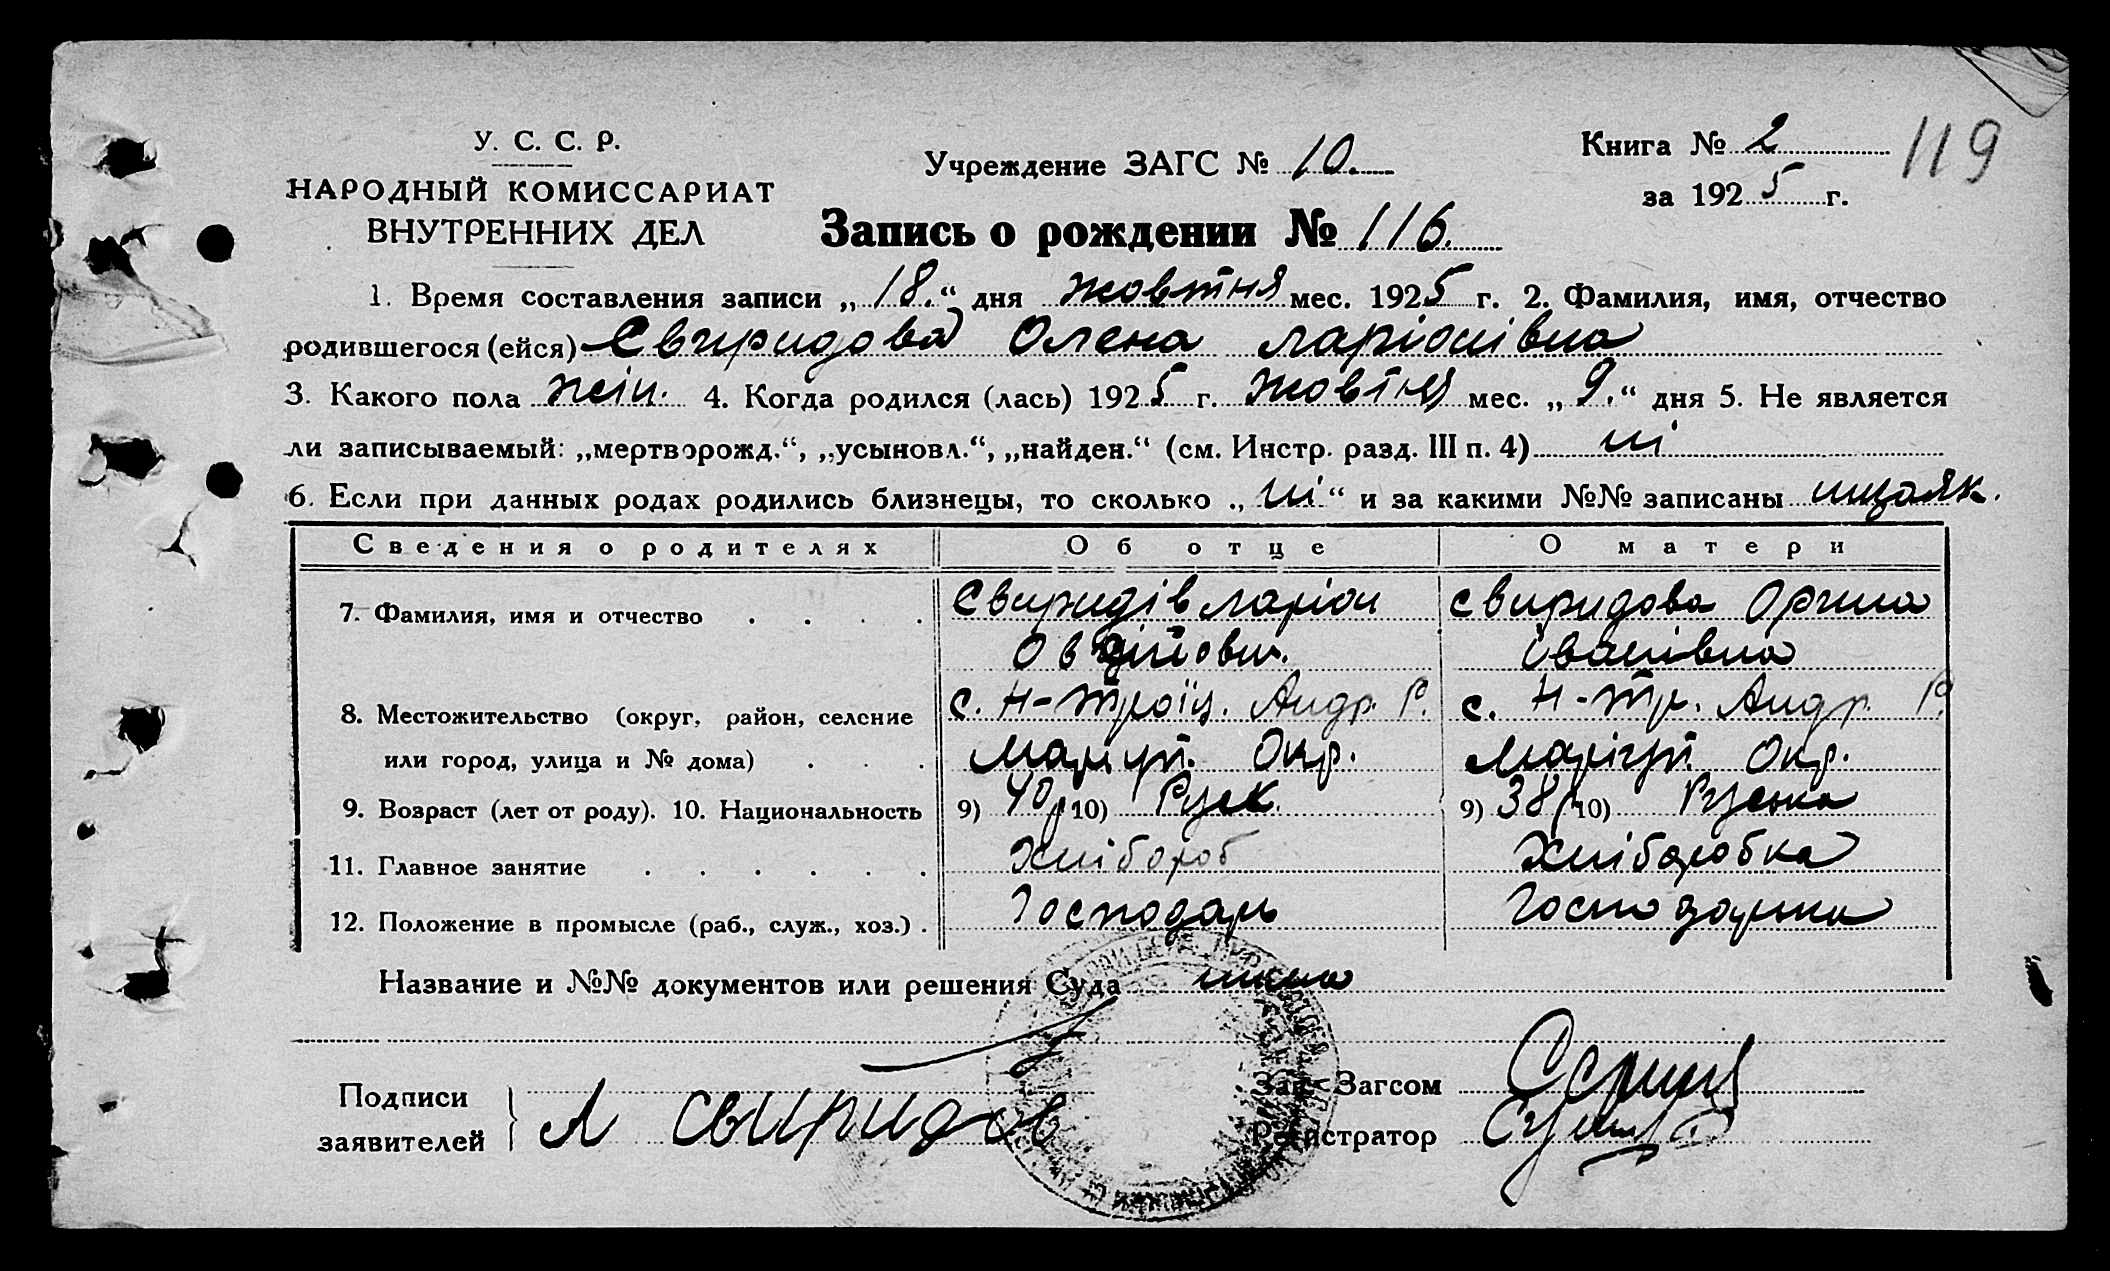 У. С. С. Р.
НАРОДНЫЙ КОМИССАРИАТ
ВНУТРЕННИХ ДЕЛ
Учреждение ЗАГС № 10.
Книга № 2
за 1925 г.
119
Запись о рождении № 116.
1. Время составления записи „18.“ дня жовтня мес. 1925 г. 2. Фамилия, имя, отчество
родившегося (ейся) Свиридова Олена Ларіонівна
3. Какого пола жін. 4. Когда родился (лась) 1925 г. жовтня мес. „9.“ дня 5. Не является
ли записываемый: „мертворожд.“, „усыновл.“, „найден.“ (см. Инстр. разд. III п. 4) ні
6. Если при данных родах родились близнецы, то сколько „ні“ и за какими №№ записаны
Сведения о родителях Об отце О матери
7. Фамилия, имя и отчество Свиридів Ларіон Свиридова Орина
Овдійович. Іванівна
8. Местожительство (округ, район, селение с. Н-Троїц. Андр. Р. с. Н-Тр. Андр. Р.
или город, улица и № дома) Маріуп. Окр. Маріуп. Окр.
9. Возраст (лет от роду). 10. Национальность 9) 40р 10) Руск. 9) 38р 10) Руська
11. Главное занятие Хлібороб Хліборобка
12. Положение в промысле (раб., служ., хоз.) Господарь Господарка
Название и №№ документов или решения Суда нема
Подписи
заявителей Л Свиридов
Зав. Загсом
Регистратор